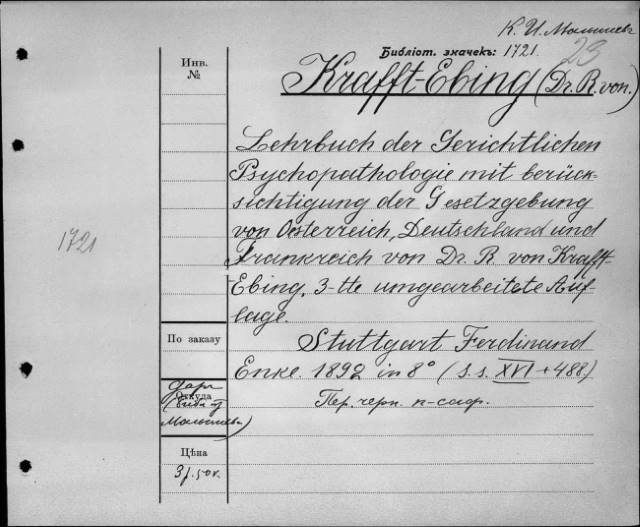 К. И. Малышев
23
Библіот. значекъ: 1721.
Инв.
№
Krafft-Ebing (Dr. R. von.)
Lehrbuch der Gerichtlichen
Psychopathologie mit berück-
sichtigung der Gesetzgebung
von Oesterreich, Deutschland und
1721
Frankreich von Dr. R. von Krafft-
Ebing, 3-tte umgearbeitete Auf-
lage.
По заказу
Stuttgart Ferdinand
Enke. 1892 in 8° (S.s. XVI + 488.)
Даръ
Откуда
Малышева)
Пер. черн. п-саф.
Цѣна
3 р. 50 к.